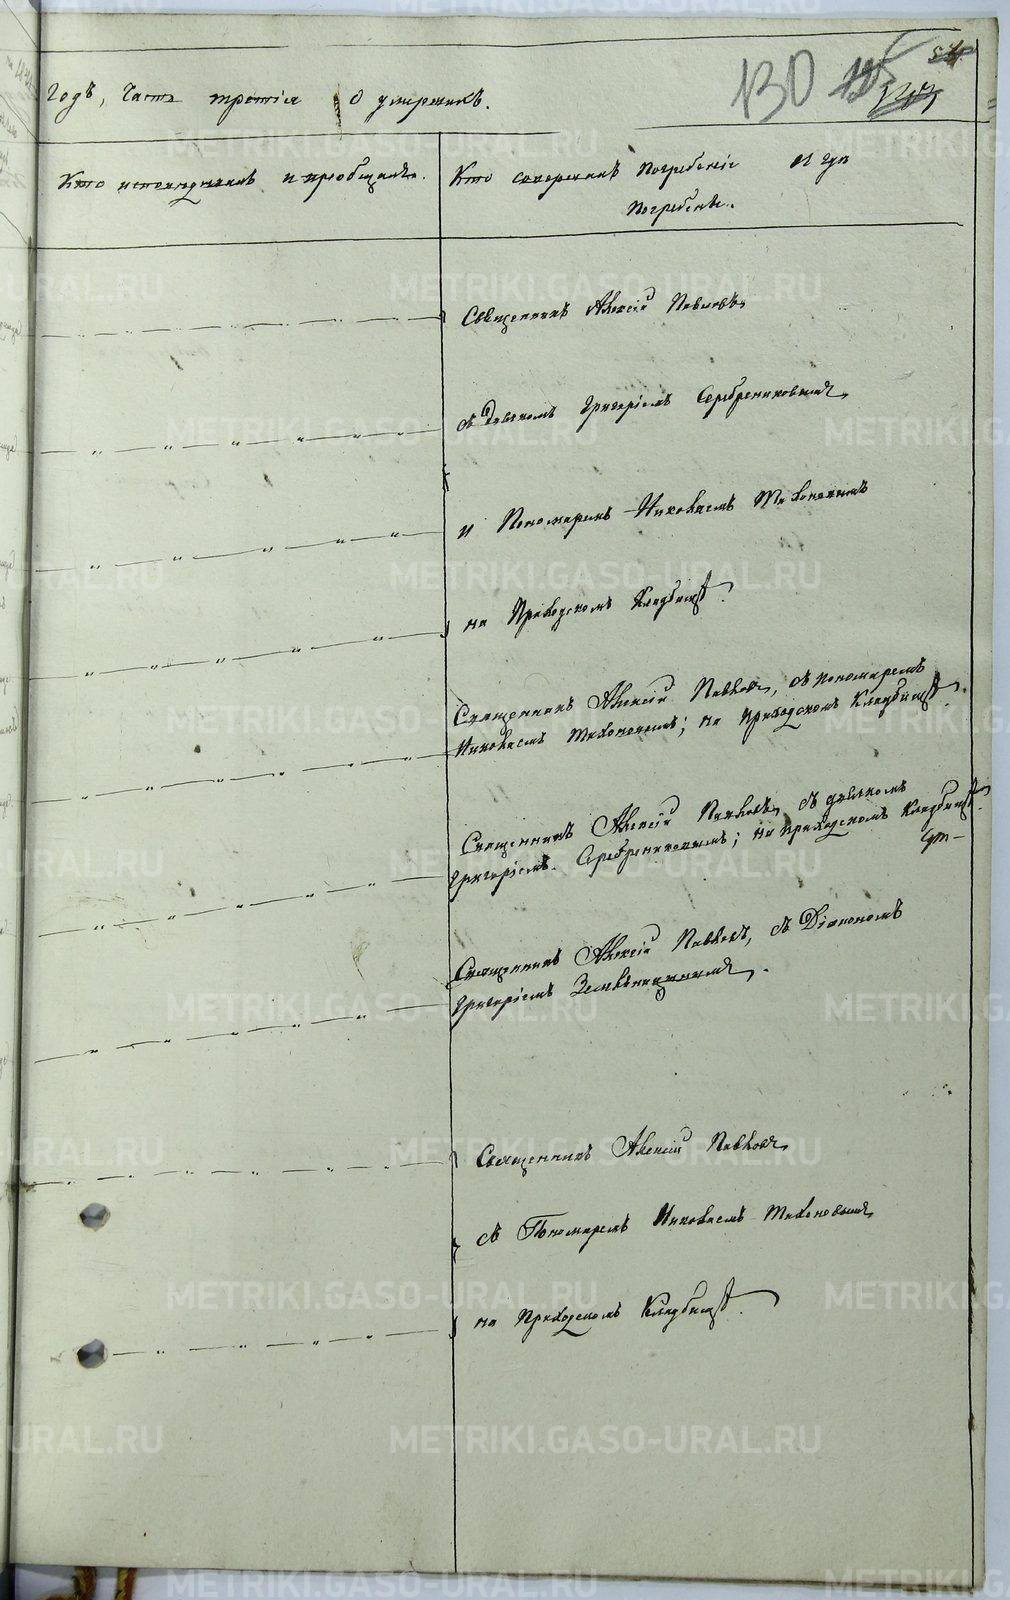 130
Годъ, Часть третія о умершихъ.
Кто исповѣдывалъ и пріобщалъ.
Кто совершалъ погребеніе и гдѣ
погребены.
Священникъ Алексій Павловъ
съ Дьячкомъ Григоріемъ Серебренниковымъ,
и Пономаремъ Николаемъ Тихоновымъ
на Приходскомъ кладбищѣ.
Священникъ Алексій Павловъ, съ пономаремъ
Николаемъ Тихоновымъ; на приходскомъ кладбищѣ.
Священникъ Алексій Павловъ, съ дьячкомъ
Григоріемъ Серебренниковымъ; на приходскомъ кладбищѣ.
Священникъ Алексій Павловъ, съ Діакономъ
Григоріемъ
Священникъ Алексій Павловъ,
съ Пономаремъ Николаемъ Тихоновымъ,
на Приходскомъ кладбищѣ.
METRIKI.GASO-URAL.RU